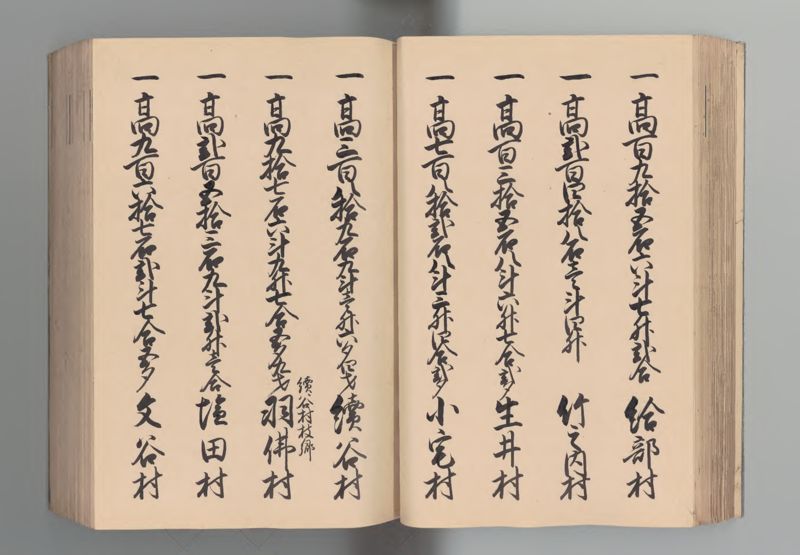 一 高百九拾五石六斗七升弐合 給部村
一 高弐百四拾八石壱斗四升 竹之内村
一 高百三拾五石八斗六升七合弐夕 生井村
一 高七百八拾弐石八斗三升四合弐夕 小宅村
一 高三百八拾九石九斗壱升六夕四才 續谷村
續谷村枝郷
一 高九拾七石六斗九升七合五夕九才 羽佛村
一 高弐百五拾三石九斗弐升壱合 塩田村
一 高九百六拾七石弐斗七合五夕 文谷村